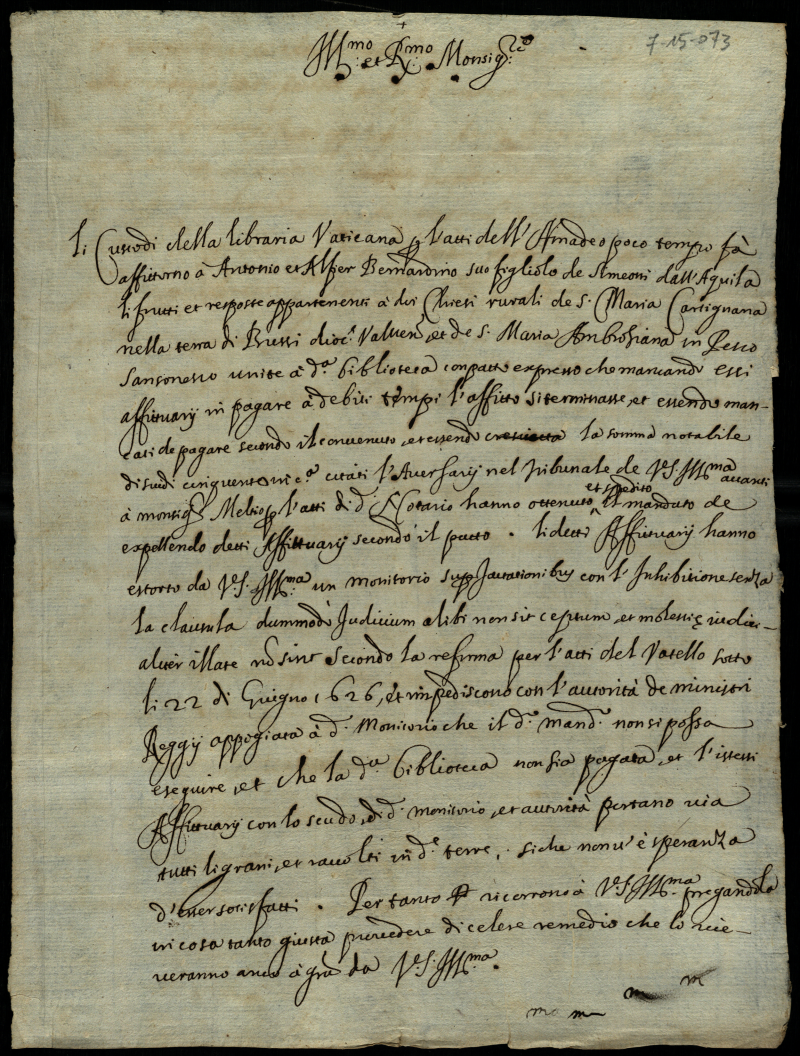 7-15-073
Ill.mo et R.mo Monsig.re
li Custodi della libraria Vaticana p l'atti dell'Amadeo poco tempo fà
affittorno à Antonio et Alper Bernardino suo figliolo de Simeotti dall'Aquila
li frutti et resposte appartenenti à doi Chiesi rurali de S. Maria Cartignana
nella terra di Bussi dioc. Valven, et de S. Maria Ambrosiana in Pesco
Sansonesco unite à d.a biblioteca con patto expresso che mancando essi
affittuarij in pagare à debiti tempi l'affitto si terminasse, et essendo man-
cati de pagare secondo il convenuto, et essendo la somma notabile
di scudi cinquanta citati l'Aversarij nel Tribunale de V.S. Ill.ma avanti
à monsig. Meltio p l'atti di d. Notario hanno ottenuto et spedito il mandato de
expellendo detti Affittuarij secondo il patto. li detti Affittuarij hanno
estorto da V.S. Ill.ma un monitorio sup Jactationibus con l'Inhibitione senza
la clausula dummodo Judicium alibi non sit ceptum, et molestie iudici-
aliter illate nō sint secondo la reforma per l'atti del Vatello sotto
li 22 di Giugno 1626, et impediscono con l'autorità de ministri
Reggij appogiata à d. Monitorio che il d. mand. non si possa
eseguire, et che la d.a biblioteca non sia pagata, et l'istessi
Affittuarij con lo scudo, di d. monitorio, et autorità portano via
tutti li grani, et raccolti in d.e terre, siche non v'è speranza
d'esser sotisfatti. Per tanto ricorrono à V.S. Ill.ma pregandola
in cosa tanto giusta provedere di celere remedio che lo rice-
veranno anco à grā da V.S. Ill.ma.
m
m
mo m